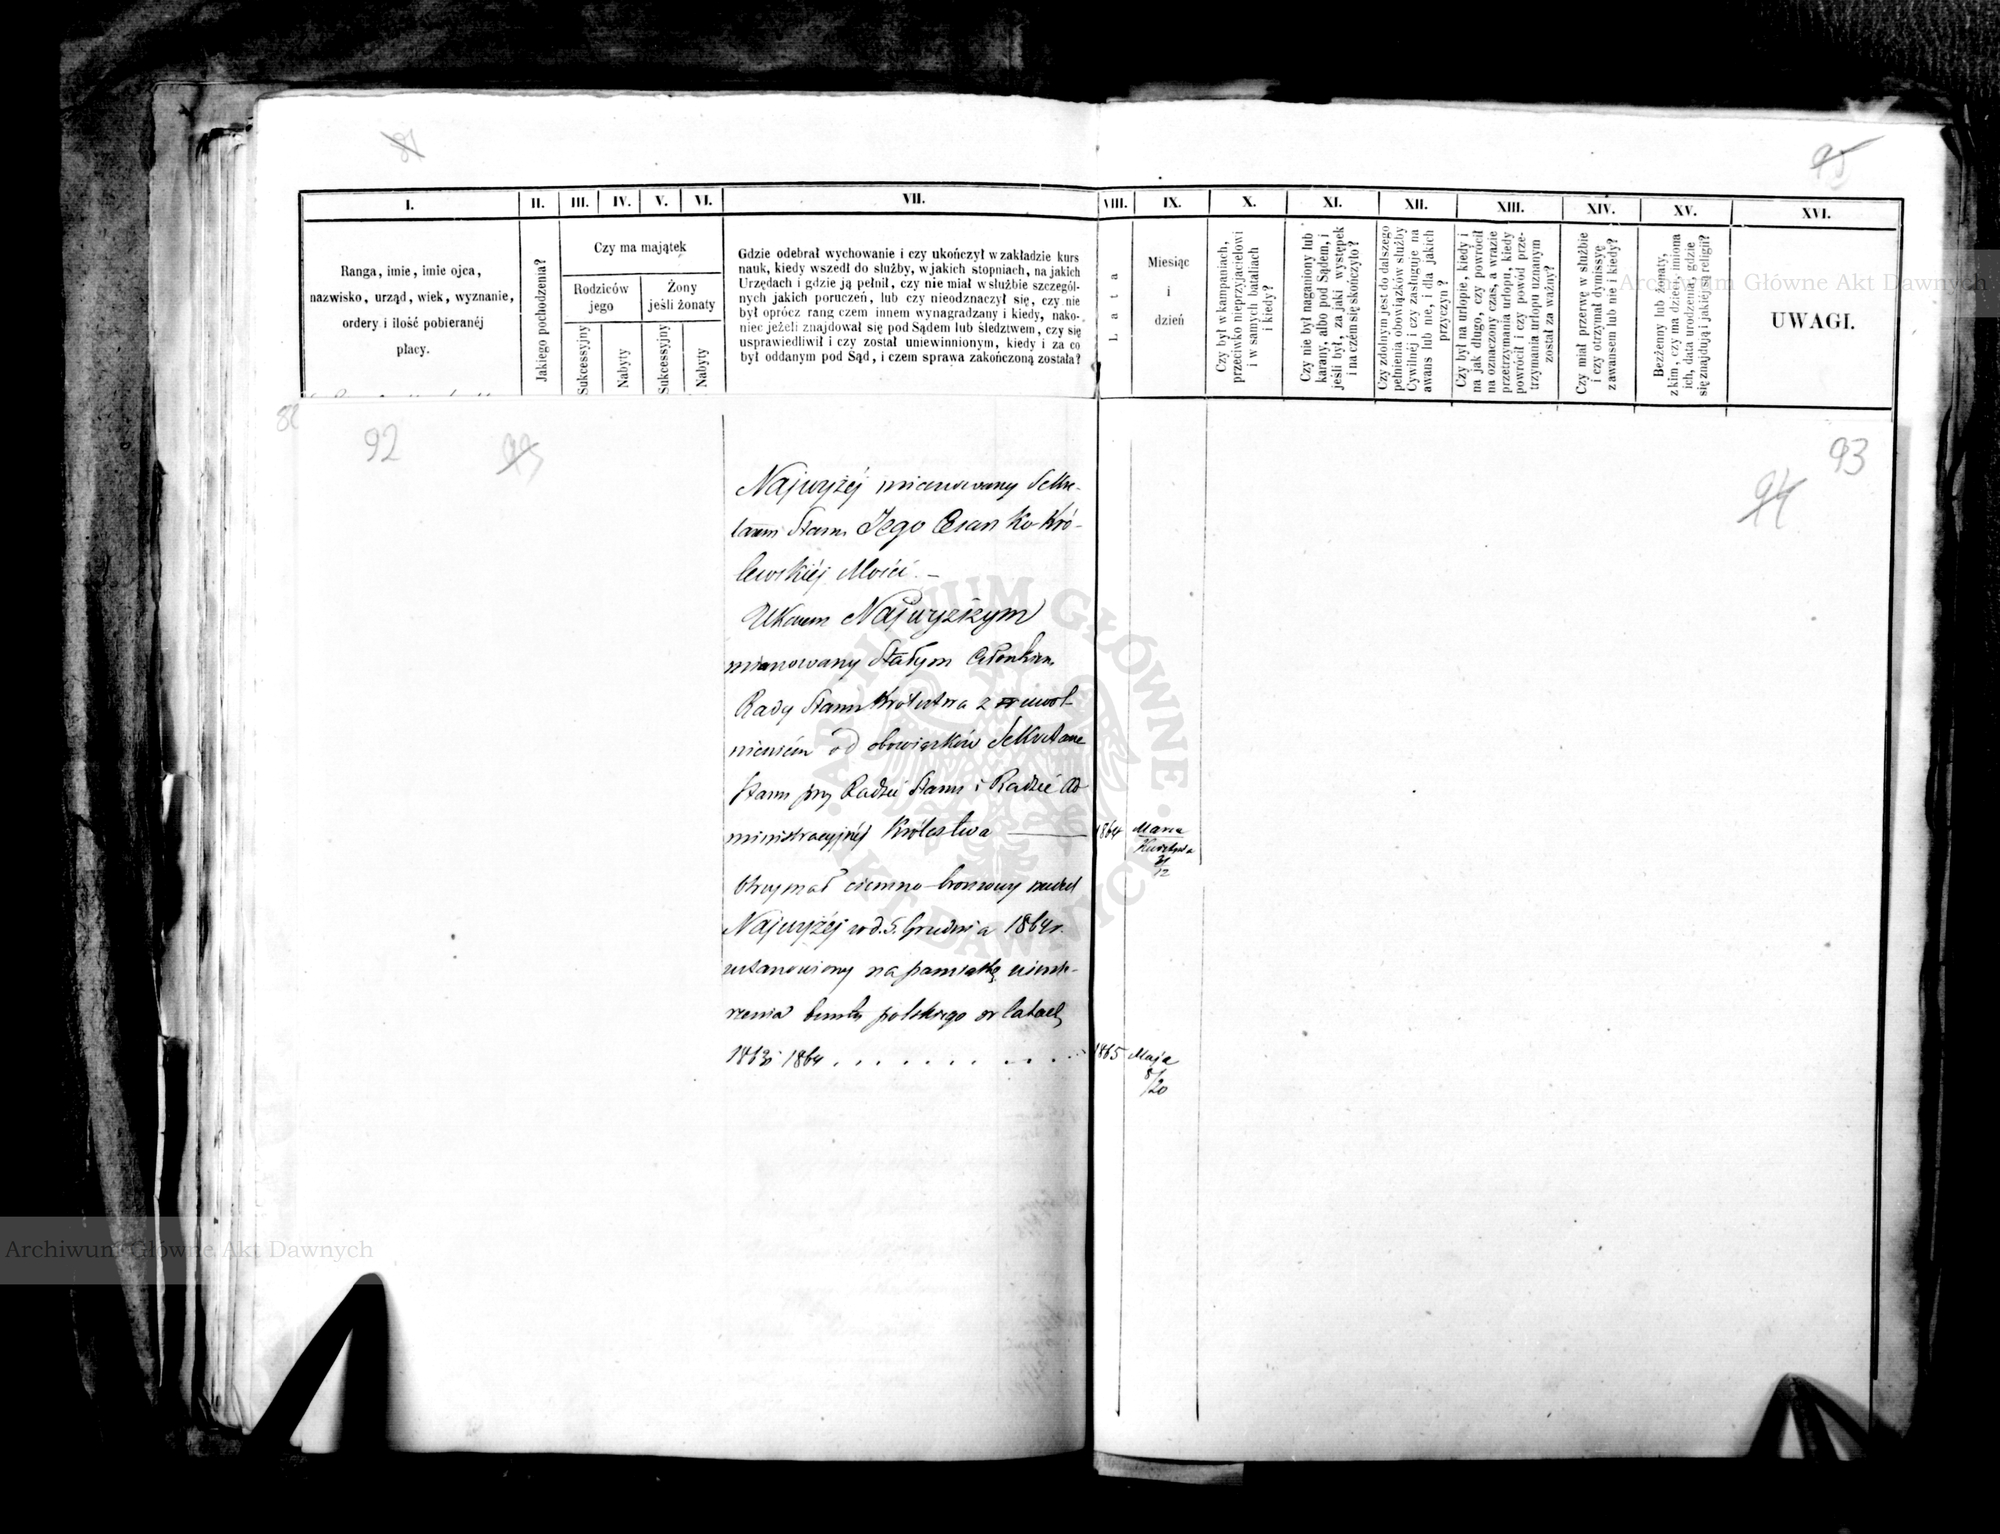 81
95
I.
II.
III.
IV.
V.
VI.
VII.
VIII.
IX.
X.
XI.
XII.
XIII.
XIV.
XV.
XVI.
Ranga, imie, imie ojca,
nazwisko, urząd, wiek, wyznanie,
ordery i ilość pobieranéj
płacy.
Jakiego pochodzenia?
Czy ma majątek
Rodziców
jego
Żony
jeśli żonaty
Sukcessyjny
Nabyty
Sukcessyjny
Nabyty
Gdzie odebrał wychowanie i czy ukończył w zakładzie kurs
nauk, kiedy wszedł do służby, w jakich stopniach, na jakich
Urzędach i gdzie ją pełnił, czy nie miał w służbie szczegól-
nych jakich poruczeń, lub czy nieodznaczył się, czy nie
był oprócz rang czem innem wynagradzany i kiedy, nako-
niec jeżeli znajdował się pod Sądem lub śledztwem, czy się
usprawiedliwił i czy został uniewinnionym, kiedy i za co
był oddanym pod Sąd, i czem sprawa zakończoną została?
Lata
Miesiąc
i
dzień
Czy był w kampaniach,
przeciwko nieprzyjacielowi
i w samych bataliach
i kiedy?
Czy nie był naganiony lub
karany, albo pod Sądem, i
jeśli był, za jaki występek
i na czém się skończyło?
Czy zdolnym jest do dalszego
pełnienia obowiązków służby
Cywilnéj i czy zasługuje na
awans lub nie, i dla jakich
przyczyn?
Czy był na urlopie, kiedy i
na jak długo, czy powrócił
na oznaczony czas, a w razie
przetrzymania urlopu, kiedy
powrócił i czy powód prze-
trzymania urlopu uznanym
został za ważny?
Czy miał przerwę w służbie
i czy otrzymał dymissyę
z awansem lub nie i kiedy?
Bezżenny lub żonaty,
z kim, czy ma dzieci, imiona
ich, data urodzenia, gdzie
się znajdują i jakiéj są religii?
UWAGI.
92
93
94
Najwyżéj mianowany Sekre-
tarzem Stanu Jego Cesarsko Kró-
lewskiéj Mości. —
Ukazem Najwyższym
mianowany Stałym Członkiem
Rady Stanu Królestwa z uwol-
nieniem od obowiązków Sekretarza
Stanu przy Radzie Stanu i Radzie Ad-
ministracyjnéj Królestwa —
1864
Marca
Kwietnia
31
12
Otrzymał ciemno-bronzowy medal
Najwyżéj w d. 5. Grudnia 1864 r.
ustanowiony na pamiątkę uśmie-
rzenia buntu polskiego w latach
1863 i 1864 . . . . . . . . . .
1865
Maja
8/20
ARCHIWUM GŁÓWNE AKT DAWNYCH
Archiwum Główne Akt Dawnych
Archiwum Główne Akt Dawnych